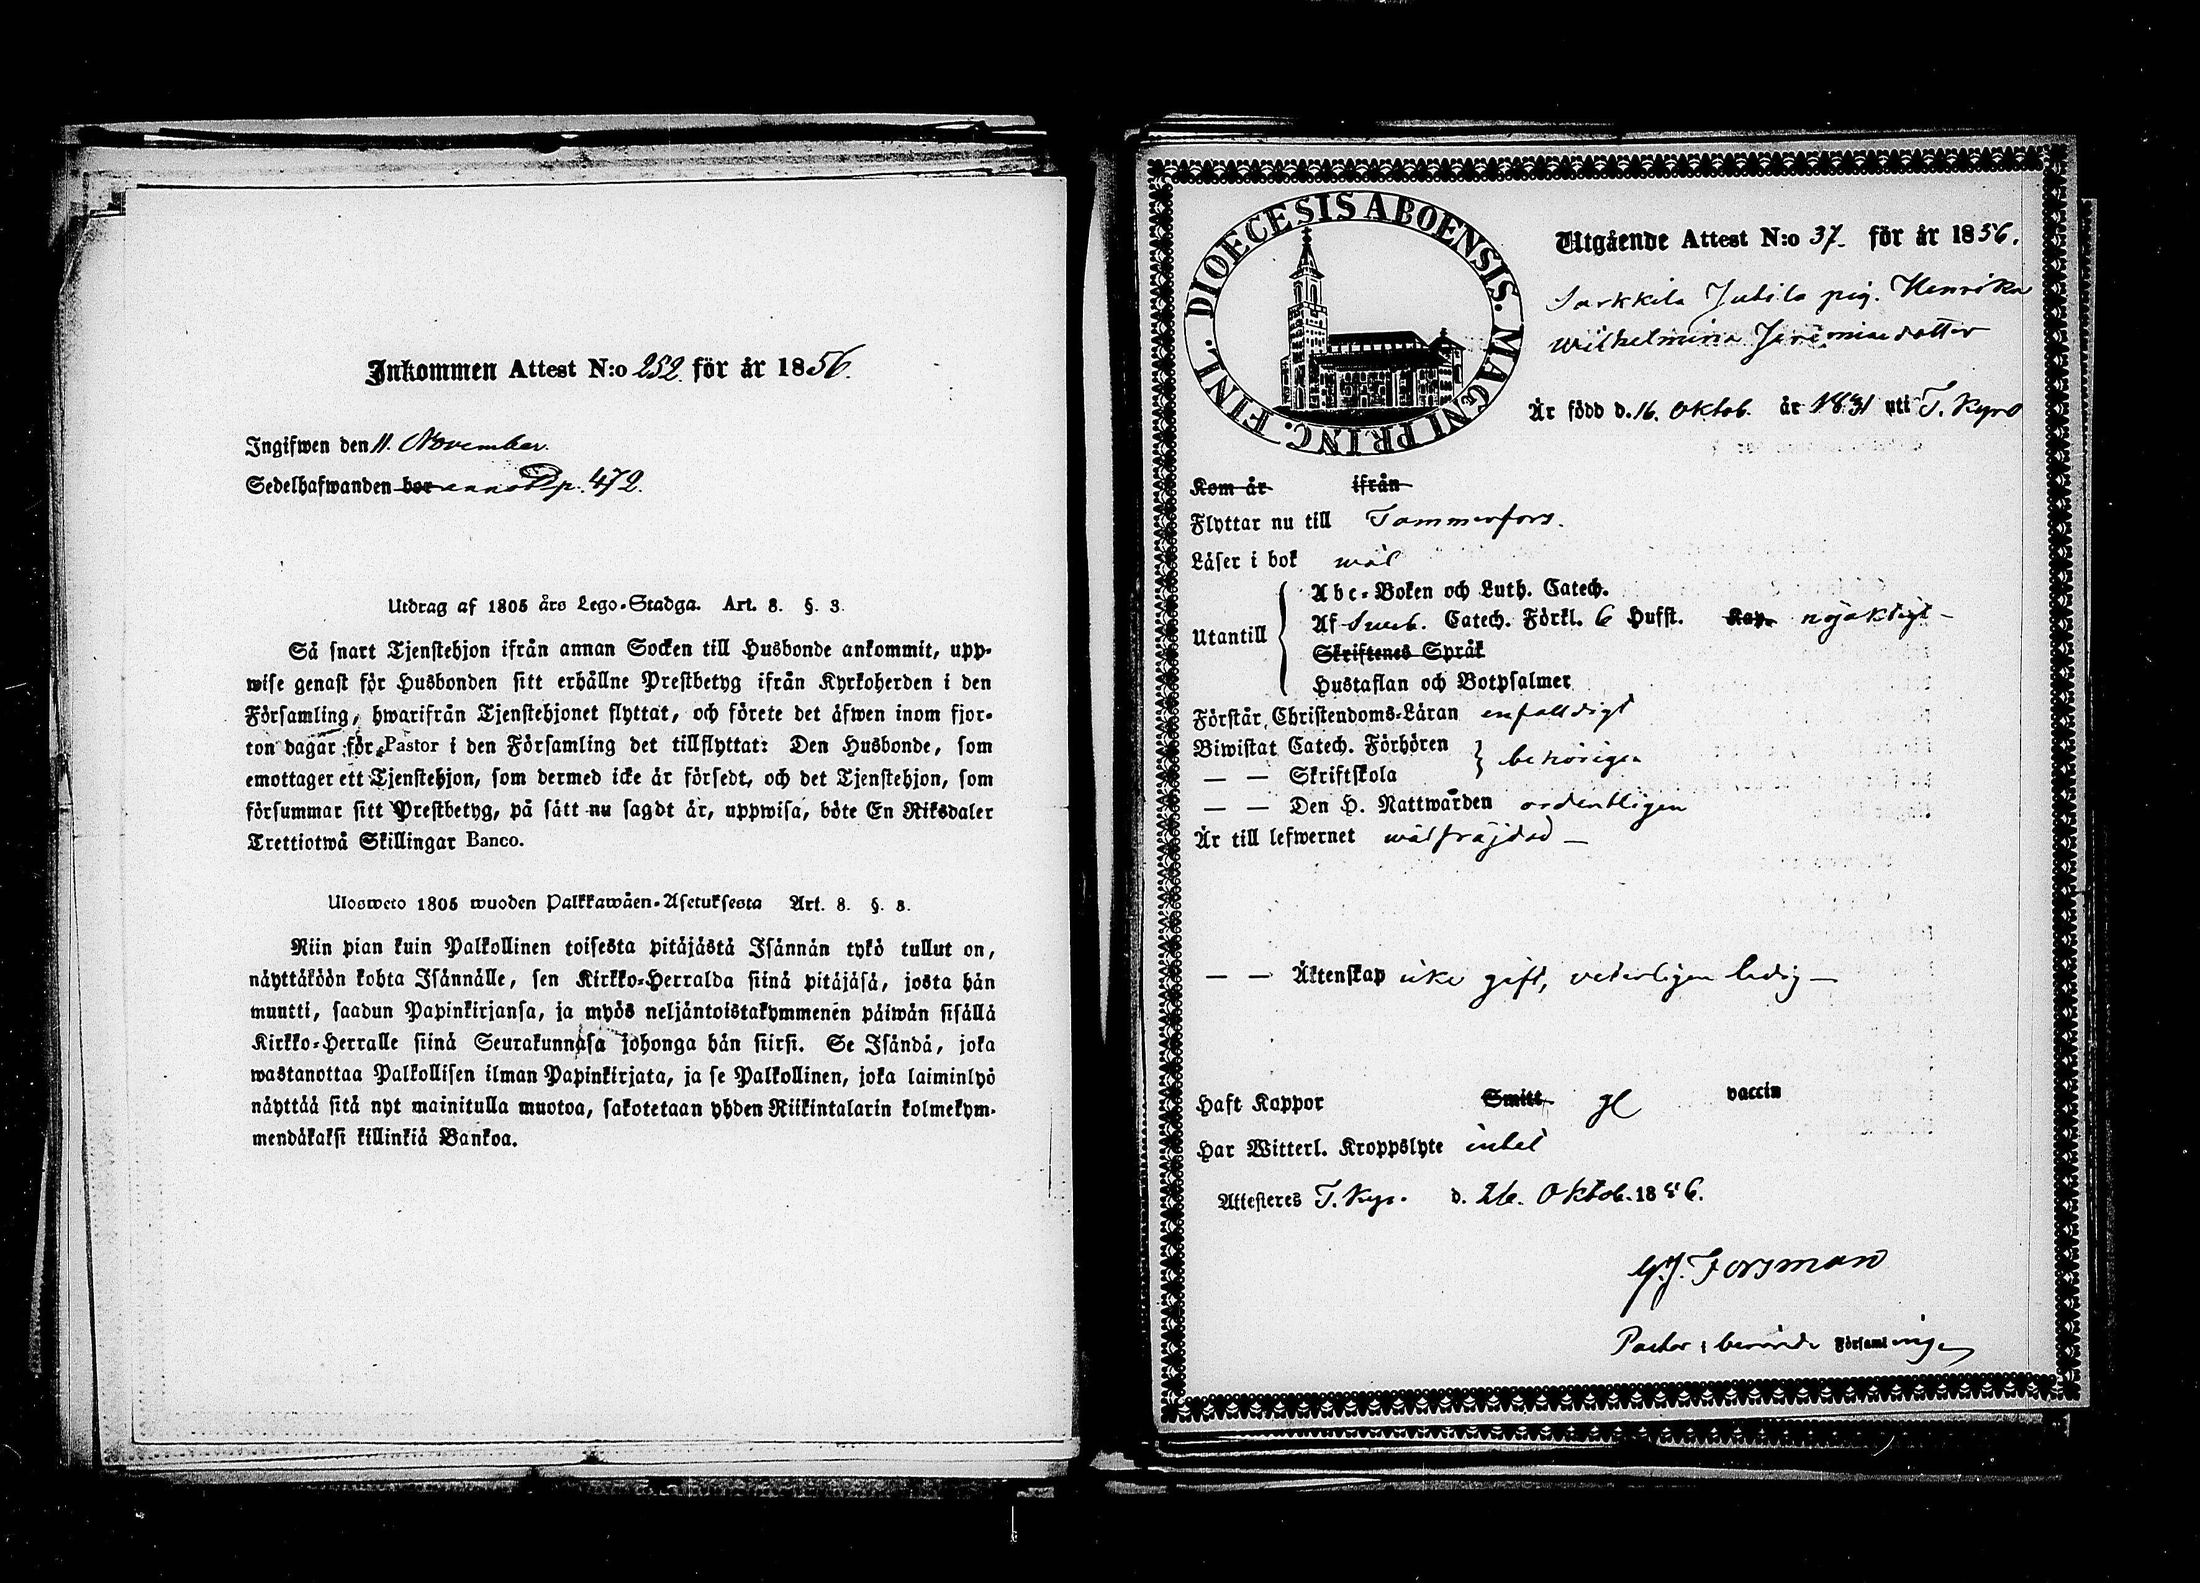 Inkommen Attest N:o 252. för år 1856.
Ingifwen den 11. November.
Sedelhafwanden bor annot. p. 472.
Utdrag af 1805 års Lego-Stadga. Art. 8. §. 3.
Så snart Tjenstehjon ifrån annan Socken till Husbonde ankommit, upp-
wise genast för Husbonden sitt erhållne Prestbetyg ifrån Kyrkoherden i den
Församling, hwarifrån Tjenstehjonet flyttat, och förete det äfwen inom fjor-
ton dagar för Pastor i den Församling det tillflyttat: Den Husbonde, som
emottager ett Tjenstehjon, som dermed icke är försedt, och det Tjenstehjon, som
försummar sitt Prestbetyg, på sätt nu sagdt är, uppwisa, böte En Riksdaler
Trettiotwå Skillingar Banco.
Ulosweto 1805 wuoden Palkkawäen-Asetuksesta Art. 8. §. 3.
Niin pian kuin Palkollinen toisesta pitäjästä Isännän tykö tullut on,
näyttäköön kohta Isännälle, sen Kirkko-Herralda siinä pitäjäsä, josta hän
muutti, saadun Papinkirjansa, ja myös neljäntoistakymmenen päiwän sisällä
Kirkko-Herralle siinä Seurakunnasa johonga hän siirsi. Se Isändä, joka
wastanottaa Palkollisen ilman Papinkirjata, ja se Palkollinen, joka laiminlyö
näyttää sitä nyt mainitulla muotoa, sakotetaan yhden Riikintalarin kolmekym-
mendäkaksi killinkiä Bankoa.
DIOECESIS ABOENSIS. MAGNI PRINC. FINL.
Utgående Attest N:o 37. för år 1856.
Sarkkila Jutila pig. Henrika
Wilhelmina Jeremiaedotter
Är född d. 16. Oktob. år 1831 uti T. Kyro
Kom år ifrån
Flyttar nu till Tammerfors.
Läser i bok wäl
Abc-Boken och Luth. Catech.
Utantill Af Sveb. Catech. Förkl. 6 Hufst. Kap. nöjaktigt
Skriftenes Språk
Hustaflan och Botpsalmer
Förstår Christendoms-Läran enfalldigt
Biwistat Catech. Förhören
— — Skriftskola behörigen
— — Den H. Nattwarden ordentligen
Är till lefwernet wälfräjdad —
— — Äktenskap icke gift, veterligen ledig —
Haft Koppor Smitt gl vaccin
Har Witterl. Kroppslyte intet
Attesteres T. Kyro. d. 26. Oktob. 1856.
G.J. Forsman
Pastor i berörde Församlingen